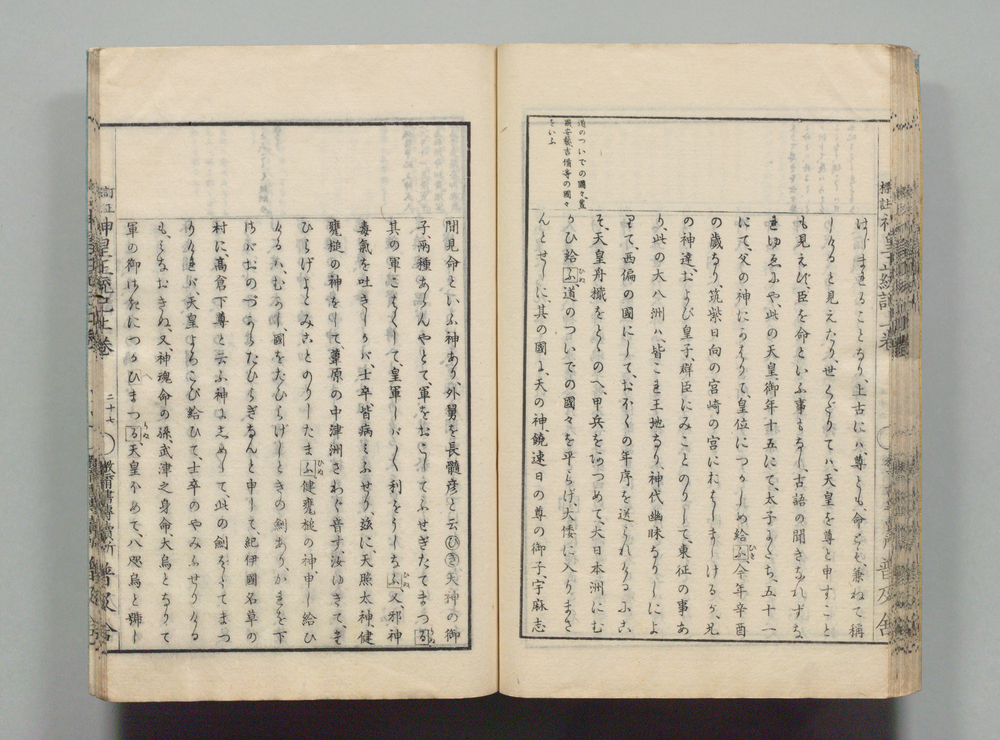 道のついでの國々、豊
前安藝吉備等の國々
をいふ
はしませることなり、上古にハ、尊とも、命とも、兼ねて稱
しけると見えたり、世くだりてハ、天皇を尊と申すこと
も見えず、臣を命といふ事もなし、古語の聞きなれずな
れるゆゑにや、此の天皇御年十五にて、太子にたち、五十一
にて、父の神にかはりて、皇位につかしめ給ふ、今年辛酉
の歳なり、筑紫日向の宮崎の宮におはしましけるが、兄
の神達、および皇子、群臣にみことのりして、東征の事あ
り、此の大八洲ハ、皆これ王地なり、神代幽昧なりしによ
りて、西偏の國にして、おほくの年序を送られけるにこ
そ、天皇舟檝をとゝのへ、甲兵をあつめて、大日本洲にむ
かひ給ふ、道のついでの國々を平らげ、大倭に入りまさ
んとせしに、其の國に、天の神、饒速日の尊の御子、宇麻志
間見命といふ神あり、外舅を長髓彦と云ひき、天神の御
子、兩種あらんやとて、軍をおこしてふせぎたてまつる、
其の軍こはくして、皇軍しバしバ利をうしなふ、又邪神
毒氣を吐きしかバ、士卒皆病みふせり、茲に天照太神、健
甕槌の神をして、葦原の中津洲さわぐ音す、汝ゆきて、そ
ひらげよとみことのりしたまふ、健甕槌の神、申し給ひ
けるハ、むかし、國をたひらげしときの劍あり、かれを下
さバ、おのづからたひらぎなんと申して、紀伊國名草の
村に、高倉下尊と云ふ神にしめして、此の劍をたてまつ
りけれバ、天皇よろこび給ひて、士卒のやみふせりける
も、みなおきぬ、又神魂命の孫、武津之身命、大烏となりて
軍の御さきにつかひまつる、天皇ほめて、八咫烏と號し
標註
訂正
神皇正統記
二十七
普及舍